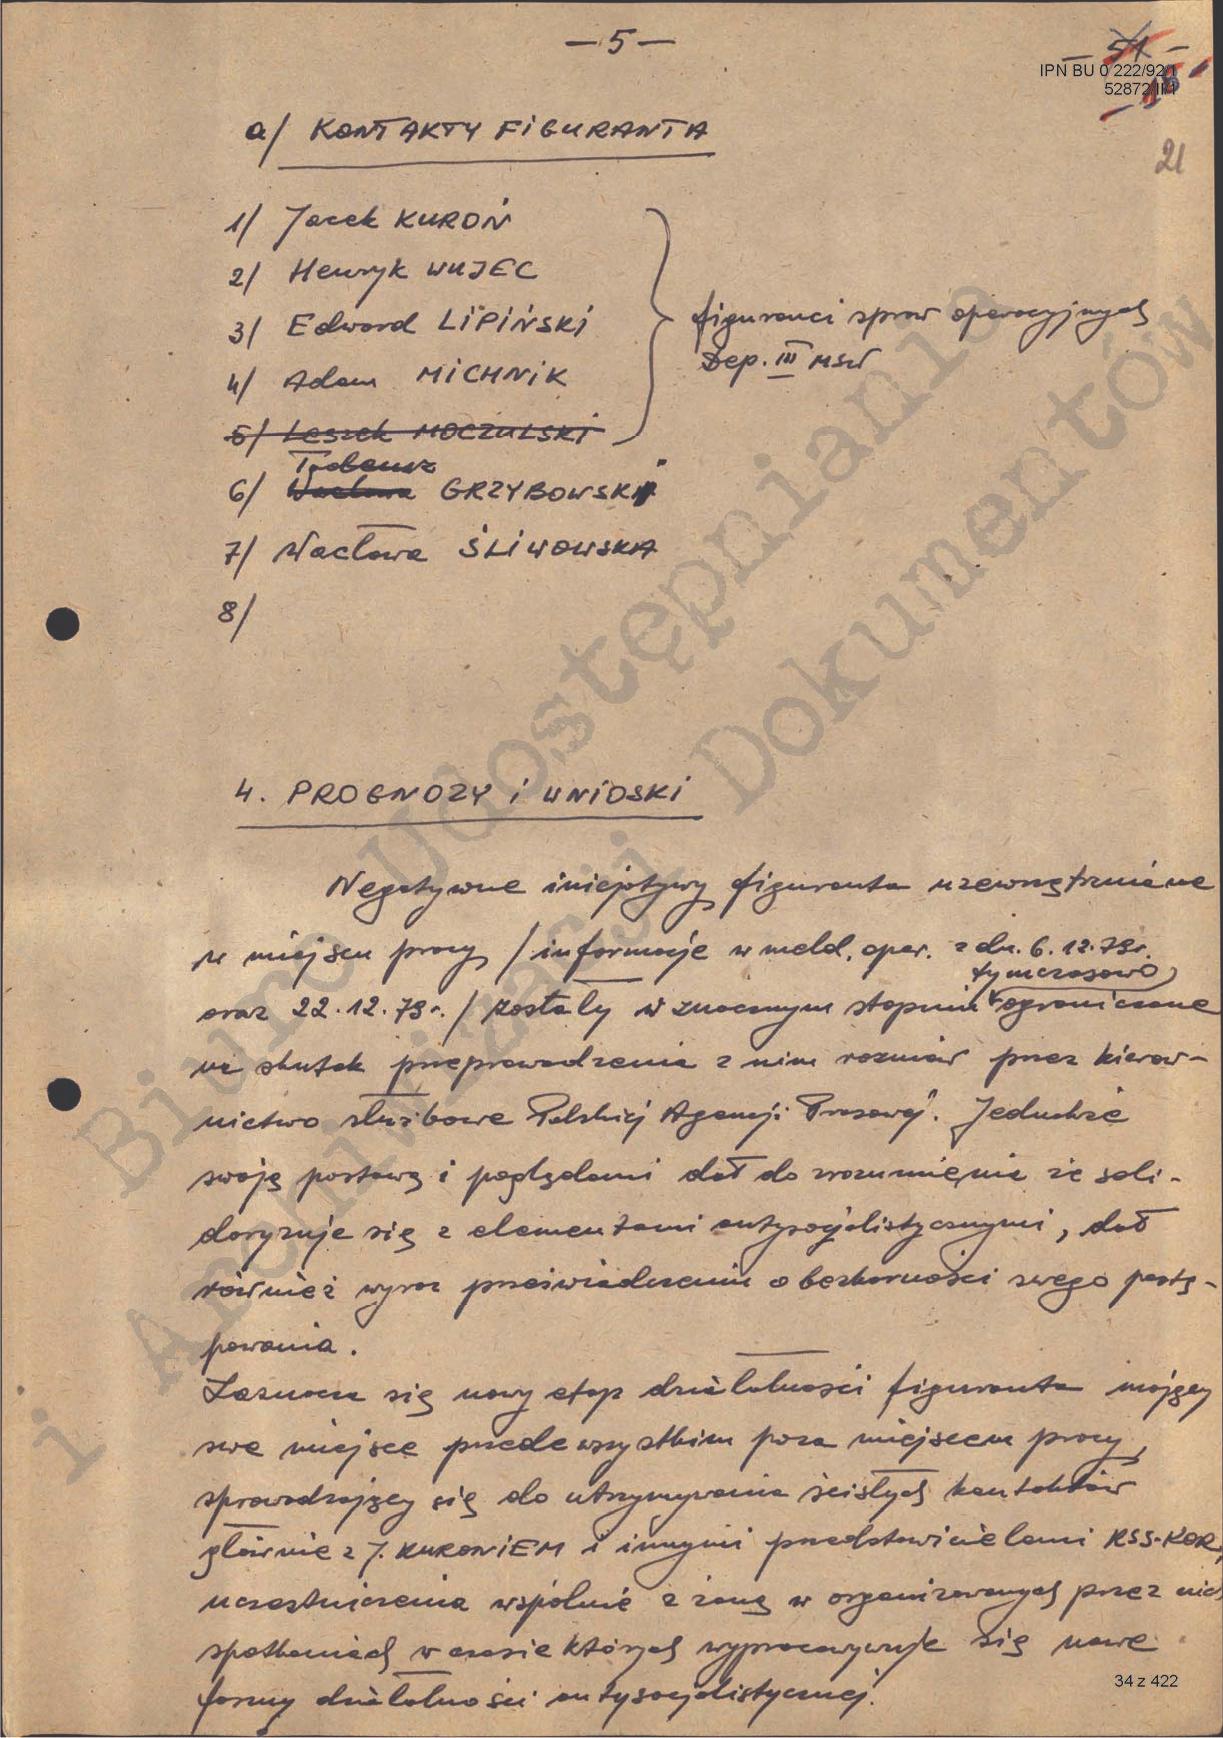 – 5 –
– 51 –
IPN BU 0 222/92/1
52872/II/1
21
a/ KONTAKTY FIGURANTA
1/ Jacek KUROŃ
2/ Henryk WUJEC
3/ Edward LIPIŃSKI
4/ Adam MICHNIK
figuranci spraw operacyjnych
Dep. III MSW
5/ Leszek MOCZULSKI
Tadeusz
6/ Wacława GRZYBOWSKI
7/ Wacława ŚLIWOWSKA
8/
4. PROGNOZY i WNIOSKI
Negatywne inicjatywy figuranta uzewnętrzniane
w miejscu pracy /informacje w meld. oper. z dn. 6.12.79r.
tymczasowo
oraz 22.12.79r./ zostały w znacznym stopniu ograniczone
na skutek przeprowadzenia z nim rozmów przez kierow-
nictwo służbowe Polskiej Agencji Prasowej. Jednakże
swoją postawą i poglądami dał do zrozumienia że soli-
daryzuje się z elementami antysocjalistycznymi, dał
również wyraz przeświadczeniu o bezkarności swego postę-
powania.
Zaznacza się nowy etap działalności figuranta mający
swe miejsce przede wszystkim poza miejscem pracy,
sprowadzający się do utrzymywania ścisłych kontaktów
głównie z J. KURONIEM i innymi przedstawicielami KSS-KOR,
uczestniczenia wspólnie z żoną w organizowanych przez nich
spotkaniach w czasie których wypracowywuje się nowe
formy działalności antysocjalistycznej.
34 z 422
Biuro Udostępniania
i Archiwizacji Dokumentów